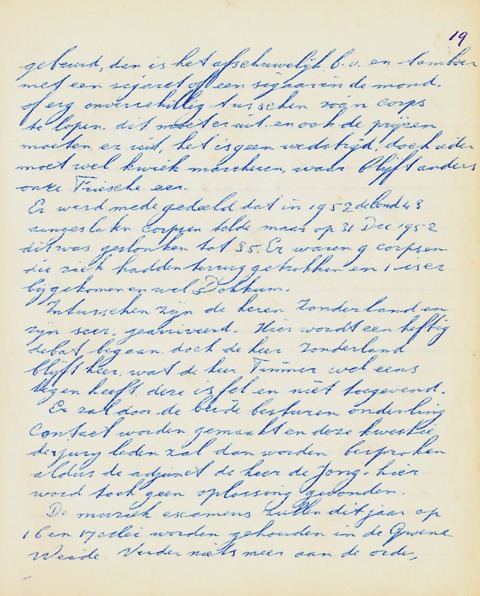 19
gebeurd, dan is het afschuwelijk b.v. en tamboer
met een sigaret of een sigaar in de mond.
of erg onverschillig tusschen zoo'n corps
te lopen. dit moet er uit. en ook de prijzen
moeten er uit, het is geen wedstrijd, doch ieder
moet wel kwiek marcheren, waar blijft anders
onze Friesche eer.
Er werd medegedeeld dat in 1952 de bond 43
aangesloten corpsen telde maar op 31 Dec 1952
dit was geslonken tot 35. Er waren 9 corpsen
die zich hadden terug getrokken en 1 is er
bijgekomen en wel Dokkum.
Intusschen zijn de heren Zonderland en
zijn secr. gearriveerd. Hier wordt een heftig
debat begaan doch de heer Zonderland
blijft heer, wat de heer Timmer wel eens
tegen heeft, deze is fel en niet toegevend.
Er zal door de beide besturen onderling
contact worden gemaakt en deze kwestie
der jury leden zal dan worden besproken
aldus de adjunct de heer de Jong. hier
word toch geen oplossing gevonden.
De muziek examens zullen dit jaar op
16 en 17 Mei worden gehouden in de Groene
Weide. Verder niets meer aan de orde,